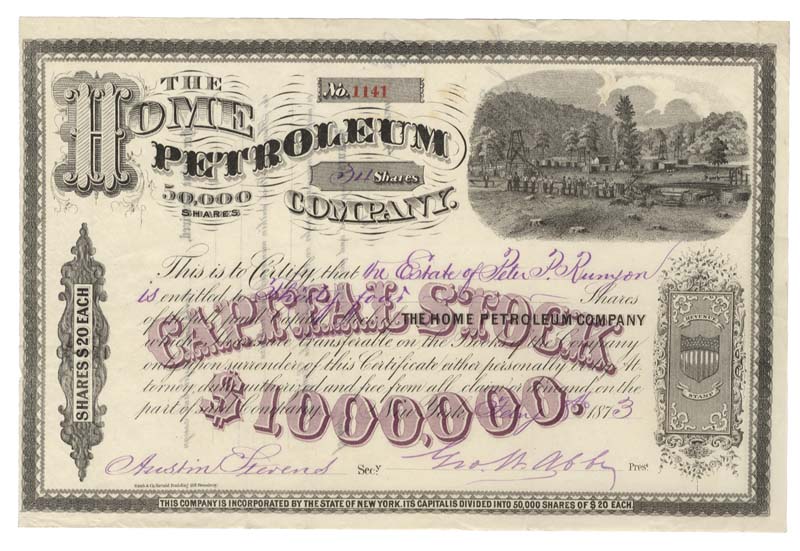 THE
HOME
PETROLEUM
COMPANY.
50,000
SHARES
No. 1141
34 Shares
This is to Certify, that the Estate of Peter P. Runyon
is entitled to Thirty four Shares
of the Capital Stock of THE HOME PETROLEUM COMPANY
transferable on the Books of the Company
only upon surrender of this Certificate either personally or by At-
torney duly authorized and free from all claim or demand, on the
part of said Company. New York, 1873
CAPITAL STOCK.
$1000,000.
SHARES $20 EACH
REVENUE
STAMP
Austin Stevens Secy
Geo. W. Abbe Prest
THIS COMPANY IS INCORPORATED BY THE STATE OF NEW YORK. ITS CAPITAL IS DIVIDED INTO 50,000 SHARES OF $20 EACH.